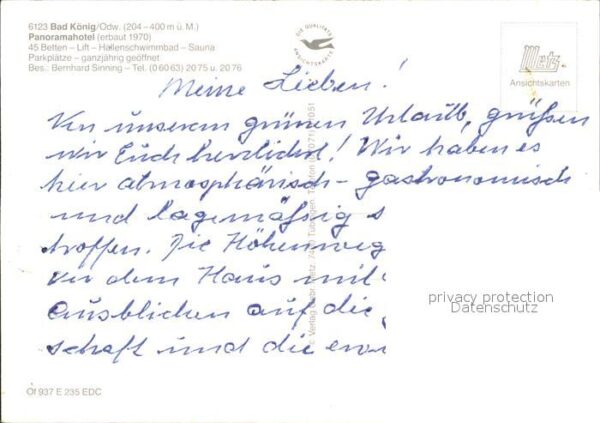 6123 Bad König/Odw. (204 – 400 m ü. M.)
Panoramahotel (erbaut 1970)
45 Betten – Lift – Hallenschwimmbad – Sauna
Parkplätze – ganzjährig geöffnet
Bes.: Bernhard Sinning – Tel. (0 60 63) 20 75 u. 20 76
DIE QUALITÄTS
ANSICHTSKARTE
Metz
Ansichtskarten
Meine Lieben!
Von unserem grünen Urlaub, grüßen
wir Euch herzlichst! Wir haben es
hier atmosphärisch – gastronomisch
und lagemäßig s
troffen. Die Höhenweg
vor dem Haus mit
Ausblicken auf die
schaft und die erw
Verlag Gebr. Metz, 7400 Tübingen, Telefon
privacy protection
Datenschutz
Of 937 E 235 EDC